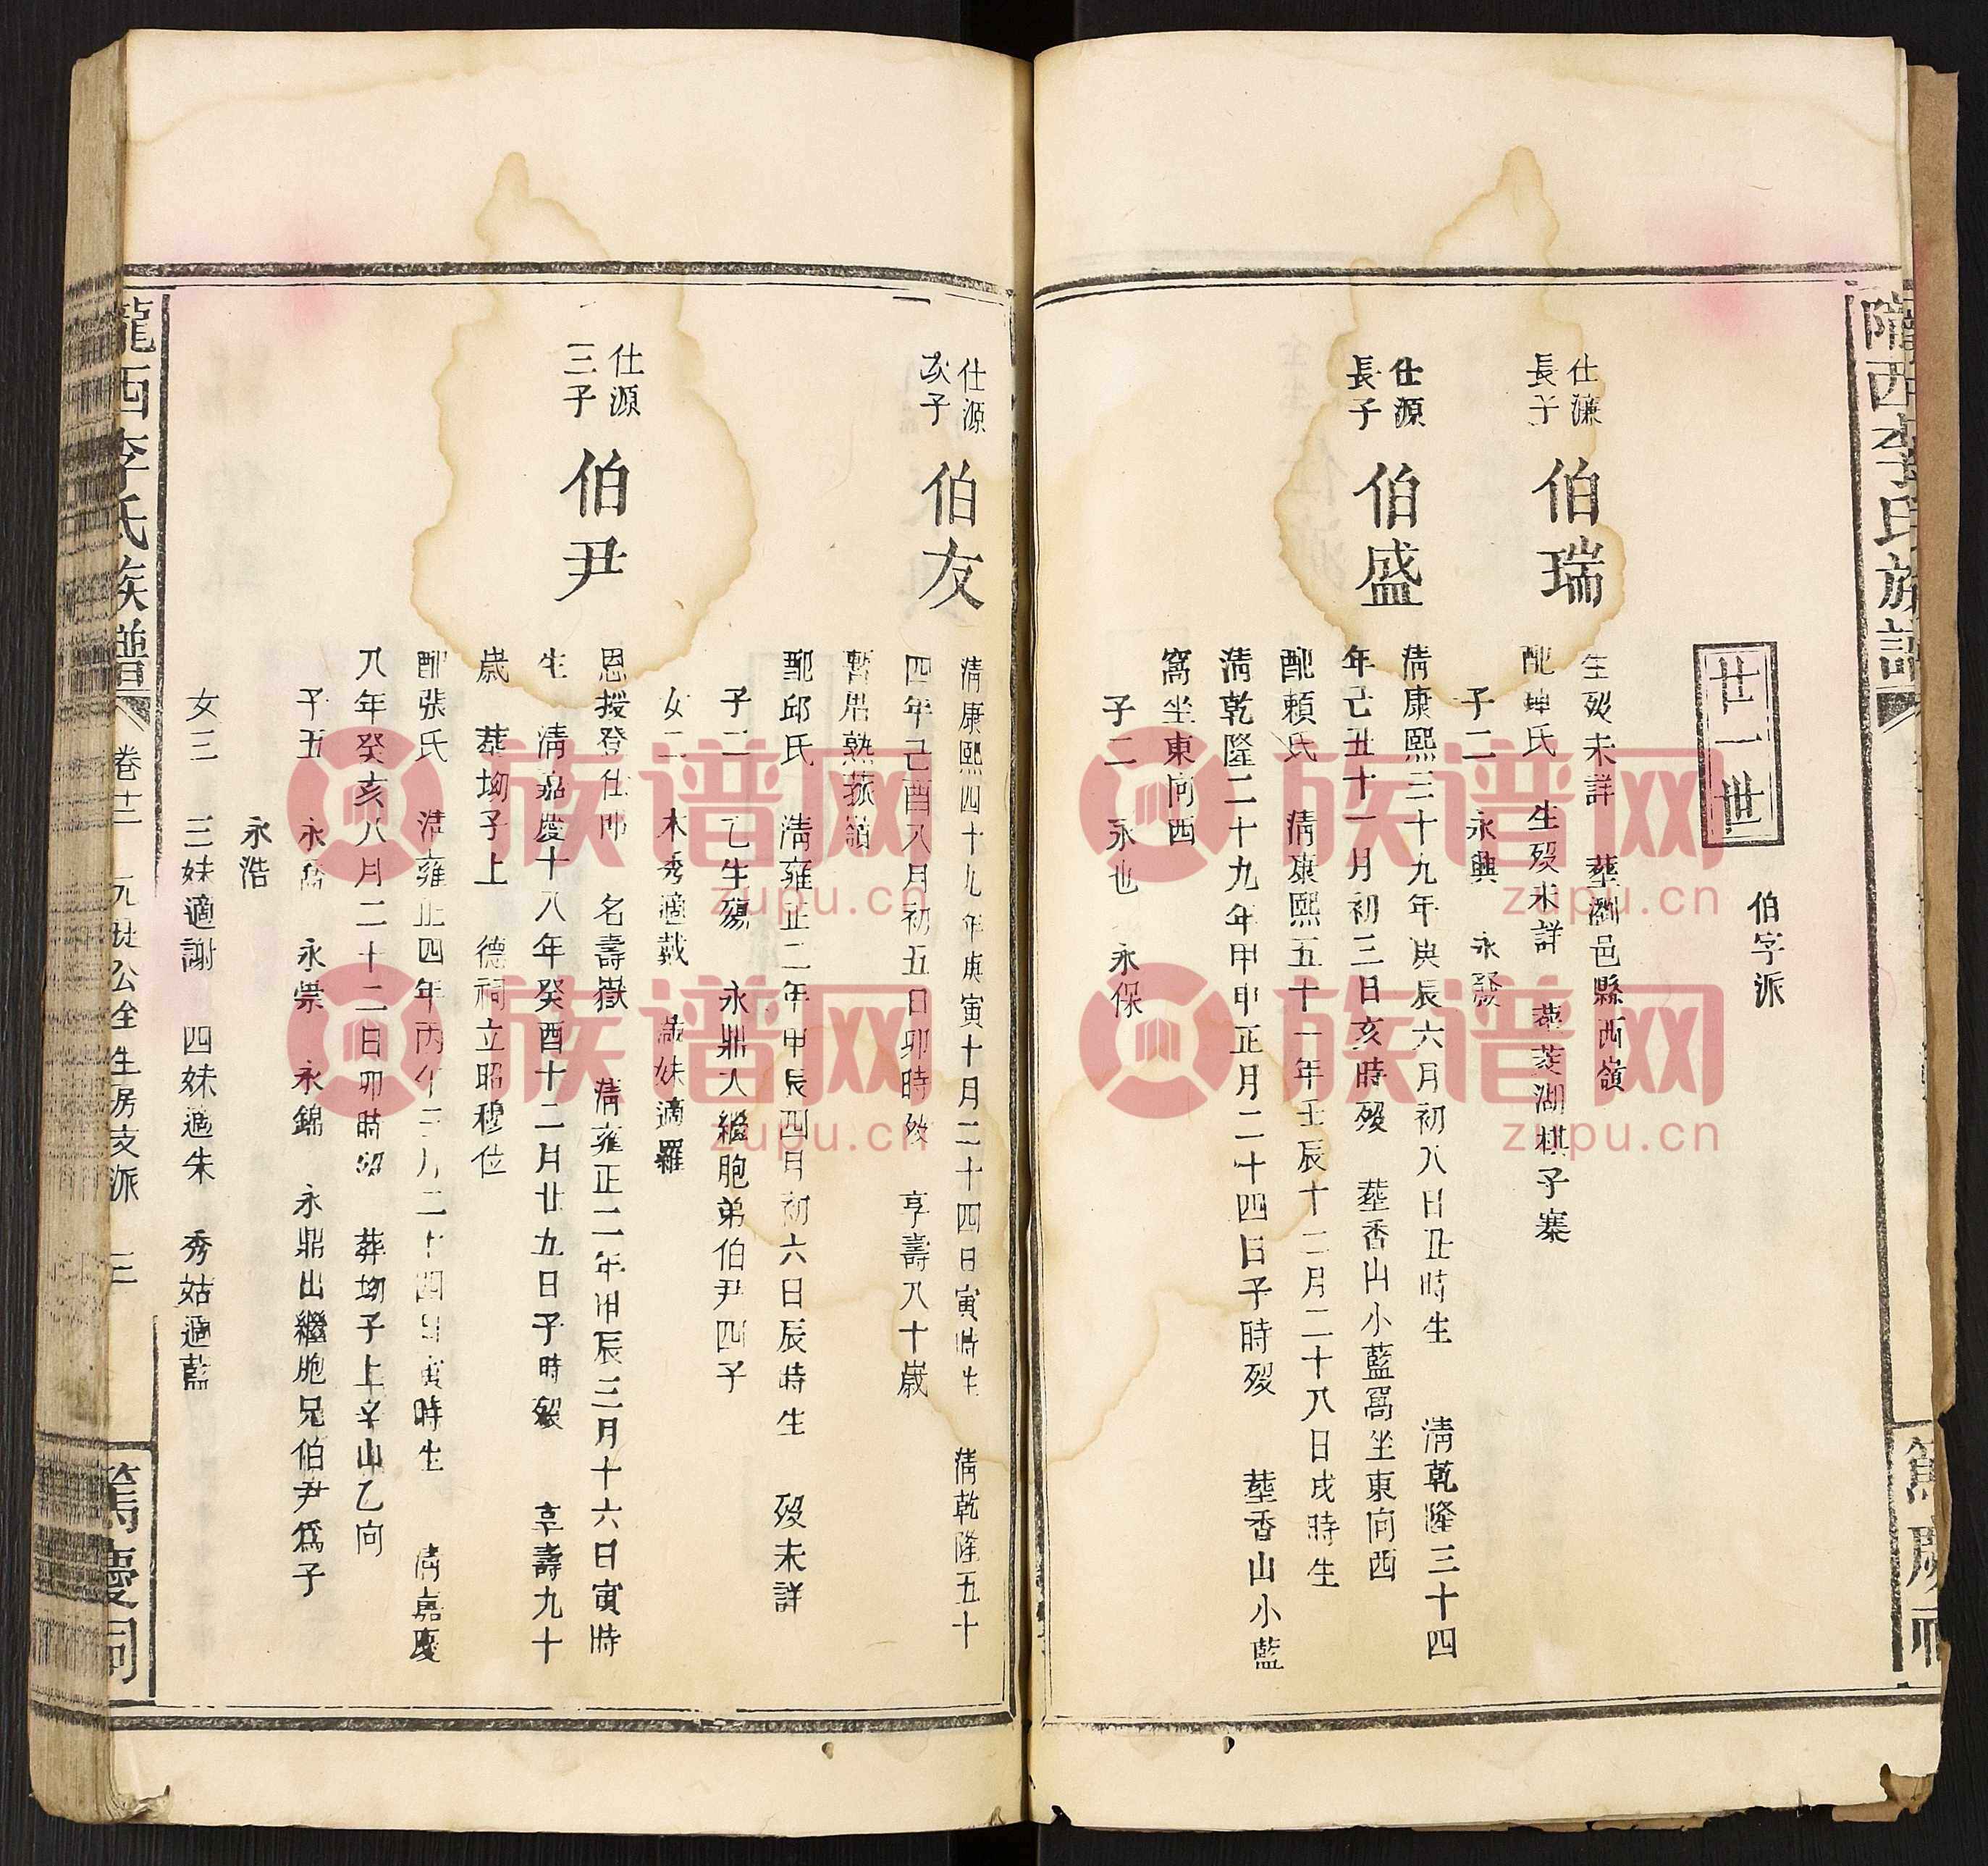 廿一世
伯字派
仕濂
長子
伯瑞
生歿未詳 塟瀏邑縣西嶺
配 氏 生歿未詳 塟菱湖棋子寨
子二 永興 永發
仕源
長子
伯盛
清康熙三十九年庚辰六月初八日丑時生 清乾隆三十四
年己丑十一月初三日亥時歿 塟香山小藍窩坐東向西
配賴氏 清康熙五十一年壬辰十二月二十八日戌時生
清乾隆二十九年甲申正月二十四日子時歿 塟香山小藍
窩坐東向西
子二 永也 永保
仕源
次子
伯友
清康熙四十九年庚寅十月二十四日寅時生 清乾隆五十
四年己酉八月初五日卯時歿 享壽八十歲
暫厝熟 嶺
配邱氏 清雍正二年甲辰四月初六日辰時生 歿未詳
子二 乙生殤 永鼎入繼胞弟伯尹四子
女二 木秀適戴 歲妹適羅
仕源
三子
伯尹
恩授登仕郎 名壽嶽 清雍正二年甲辰三月十六日寅時
生 清嘉慶十八年癸酉十二月廿九日子時歿 享壽九十
歲 葬坳子上 德祠立昭穆位
配張氏 清雍正四年丙午三月二十四日寅時生 清嘉慶
八年癸亥八月二十二日卯時歿 葬坳子上辛山乙向
子五 永喬 永崇 永錦 永鼎出繼胞兄伯尹爲子
永浩
女三 三妹適謝 四妹適朱 秀姑適藍
隴西李氏族譜
卷十二
九世公銓生房支派 三
篤慶祠
隴西李氏族譜
篤慶祠
族谱网
zupu.cn
族谱网
zupu.cn
族谱网
zupu.cn
族谱网
zupu.cn